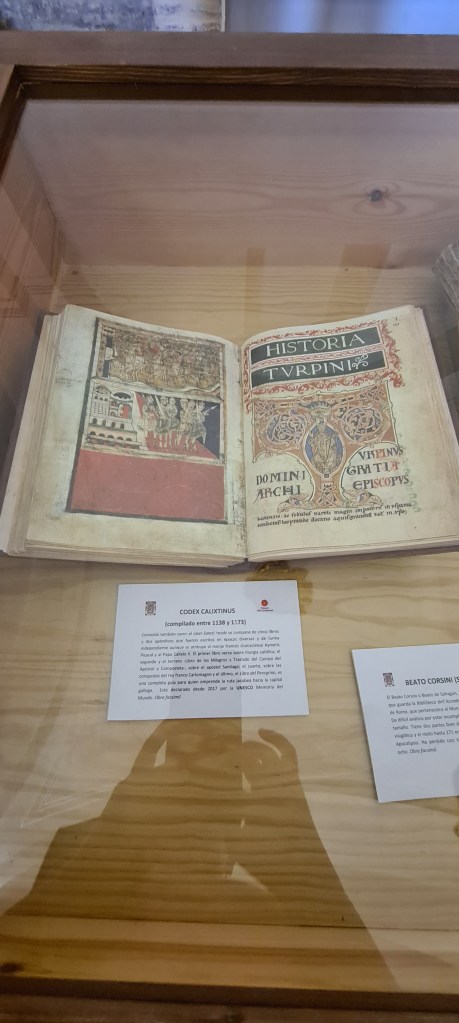 HISTORIA
TVRPINI
DOMINI
ARCHI
VRPINUS
GRATIA
EPISCOPVS
CODEX CALIXTINUS
(compilado entre 1138 y 1173)
Conocido también como el Liber Iacobi, se compone de cinco libros
y dos apéndices que fueron escritos en épocas diversas y de forma
independiente aunque se atribuye al monje francés Aymeric
Picaud y al Papa Calixto II. El primer libro versa sobre liturgia católica; el
segundo y el tercero, Libro de los Milagros y Traslado del Cuerpo del
Apóstol a Compostela, sobre el apóstol Santiago; el cuarto, sobre las
conquistas del rey franco Carlomagno y el último, el Libro del Peregrino, es
una completa guía para quien emprende la ruta jacobea hacia la capital
gallega. Está declarado desde 2017 por la UNESCO Memoria del
Mundo. Obra facsímil
BEATO CORSINI (S
El Beato Corsini o Beato de
que guarda la Biblioteca del
de Roma, que perteneciera al
De difícil análisis por estar
tamaño. Tiene dos partes bien
visigótica y el resto hasta 171
Apocalipsis. Ha perdido casi
Obra facsímil